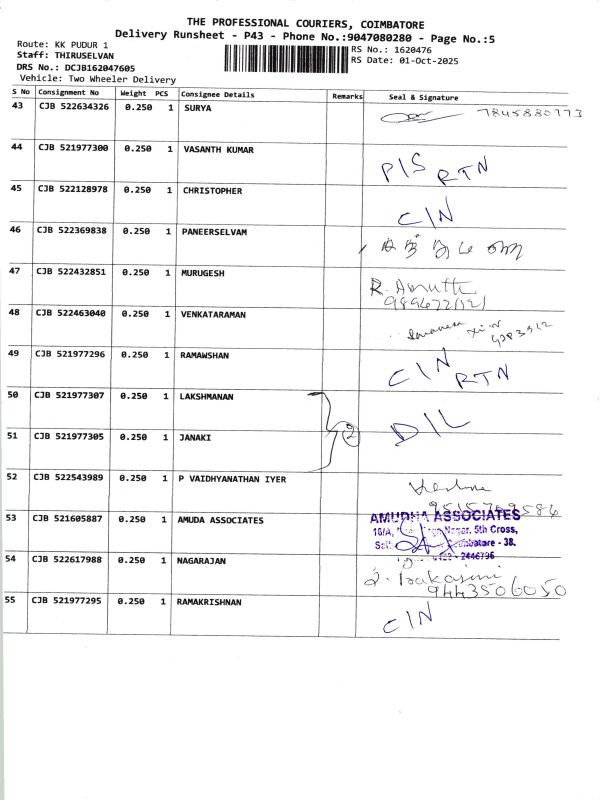 THE PROFESSIONAL COURIERS, COIMBATORE
Delivery Runsheet - P43 - Phone No.:9047080280 - Page No.:5
Route: KK PUDUR 1
Staff: THIRUSELVAN
DRS No.: DCJB162047605
Vehicle: Two Wheeler Delivery
RS No.: 1620476
RS Date: 01-Oct-2025
S No Consignment No Weight PCS Consignee Details Remarks Seal & Signature
43 CJB 522634326 0.250 1 SURYA 7845880773
44 CJB 521977300 0.250 1 VASANTH KUMAR P/S RTN
45 CJB 522128978 0.250 1 CHRISTOPHER C/N
46 CJB 522369838 0.250 1 PANEERSELVAM
47 CJB 522432851 0.250 1 MURUGESH R. Amutha
48 CJB 522463040 0.250 1 VENKATARAMAN
49 CJB 521977296 0.250 1 RAMAWSHAN C/N RTN
50 CJB 521977307 0.250 1 LAKSHMANAN D/L
51 CJB 521977305 0.250 1 JANAKI 2
52 CJB 522543989 0.250 1 P VAIDHYANATHAN IYER
53 CJB 521605887 0.250 1 AMUDA ASSOCIATES AMUDHA ASSOCIATES
16/A, Nagar, 5th Cross,
Coimbatore - 38.
2446796
54 CJB 522617988 0.250 1 NAGARAJAN
9443506050
55 CJB 521977295 0.250 1 RAMAKRISHNAN C/N